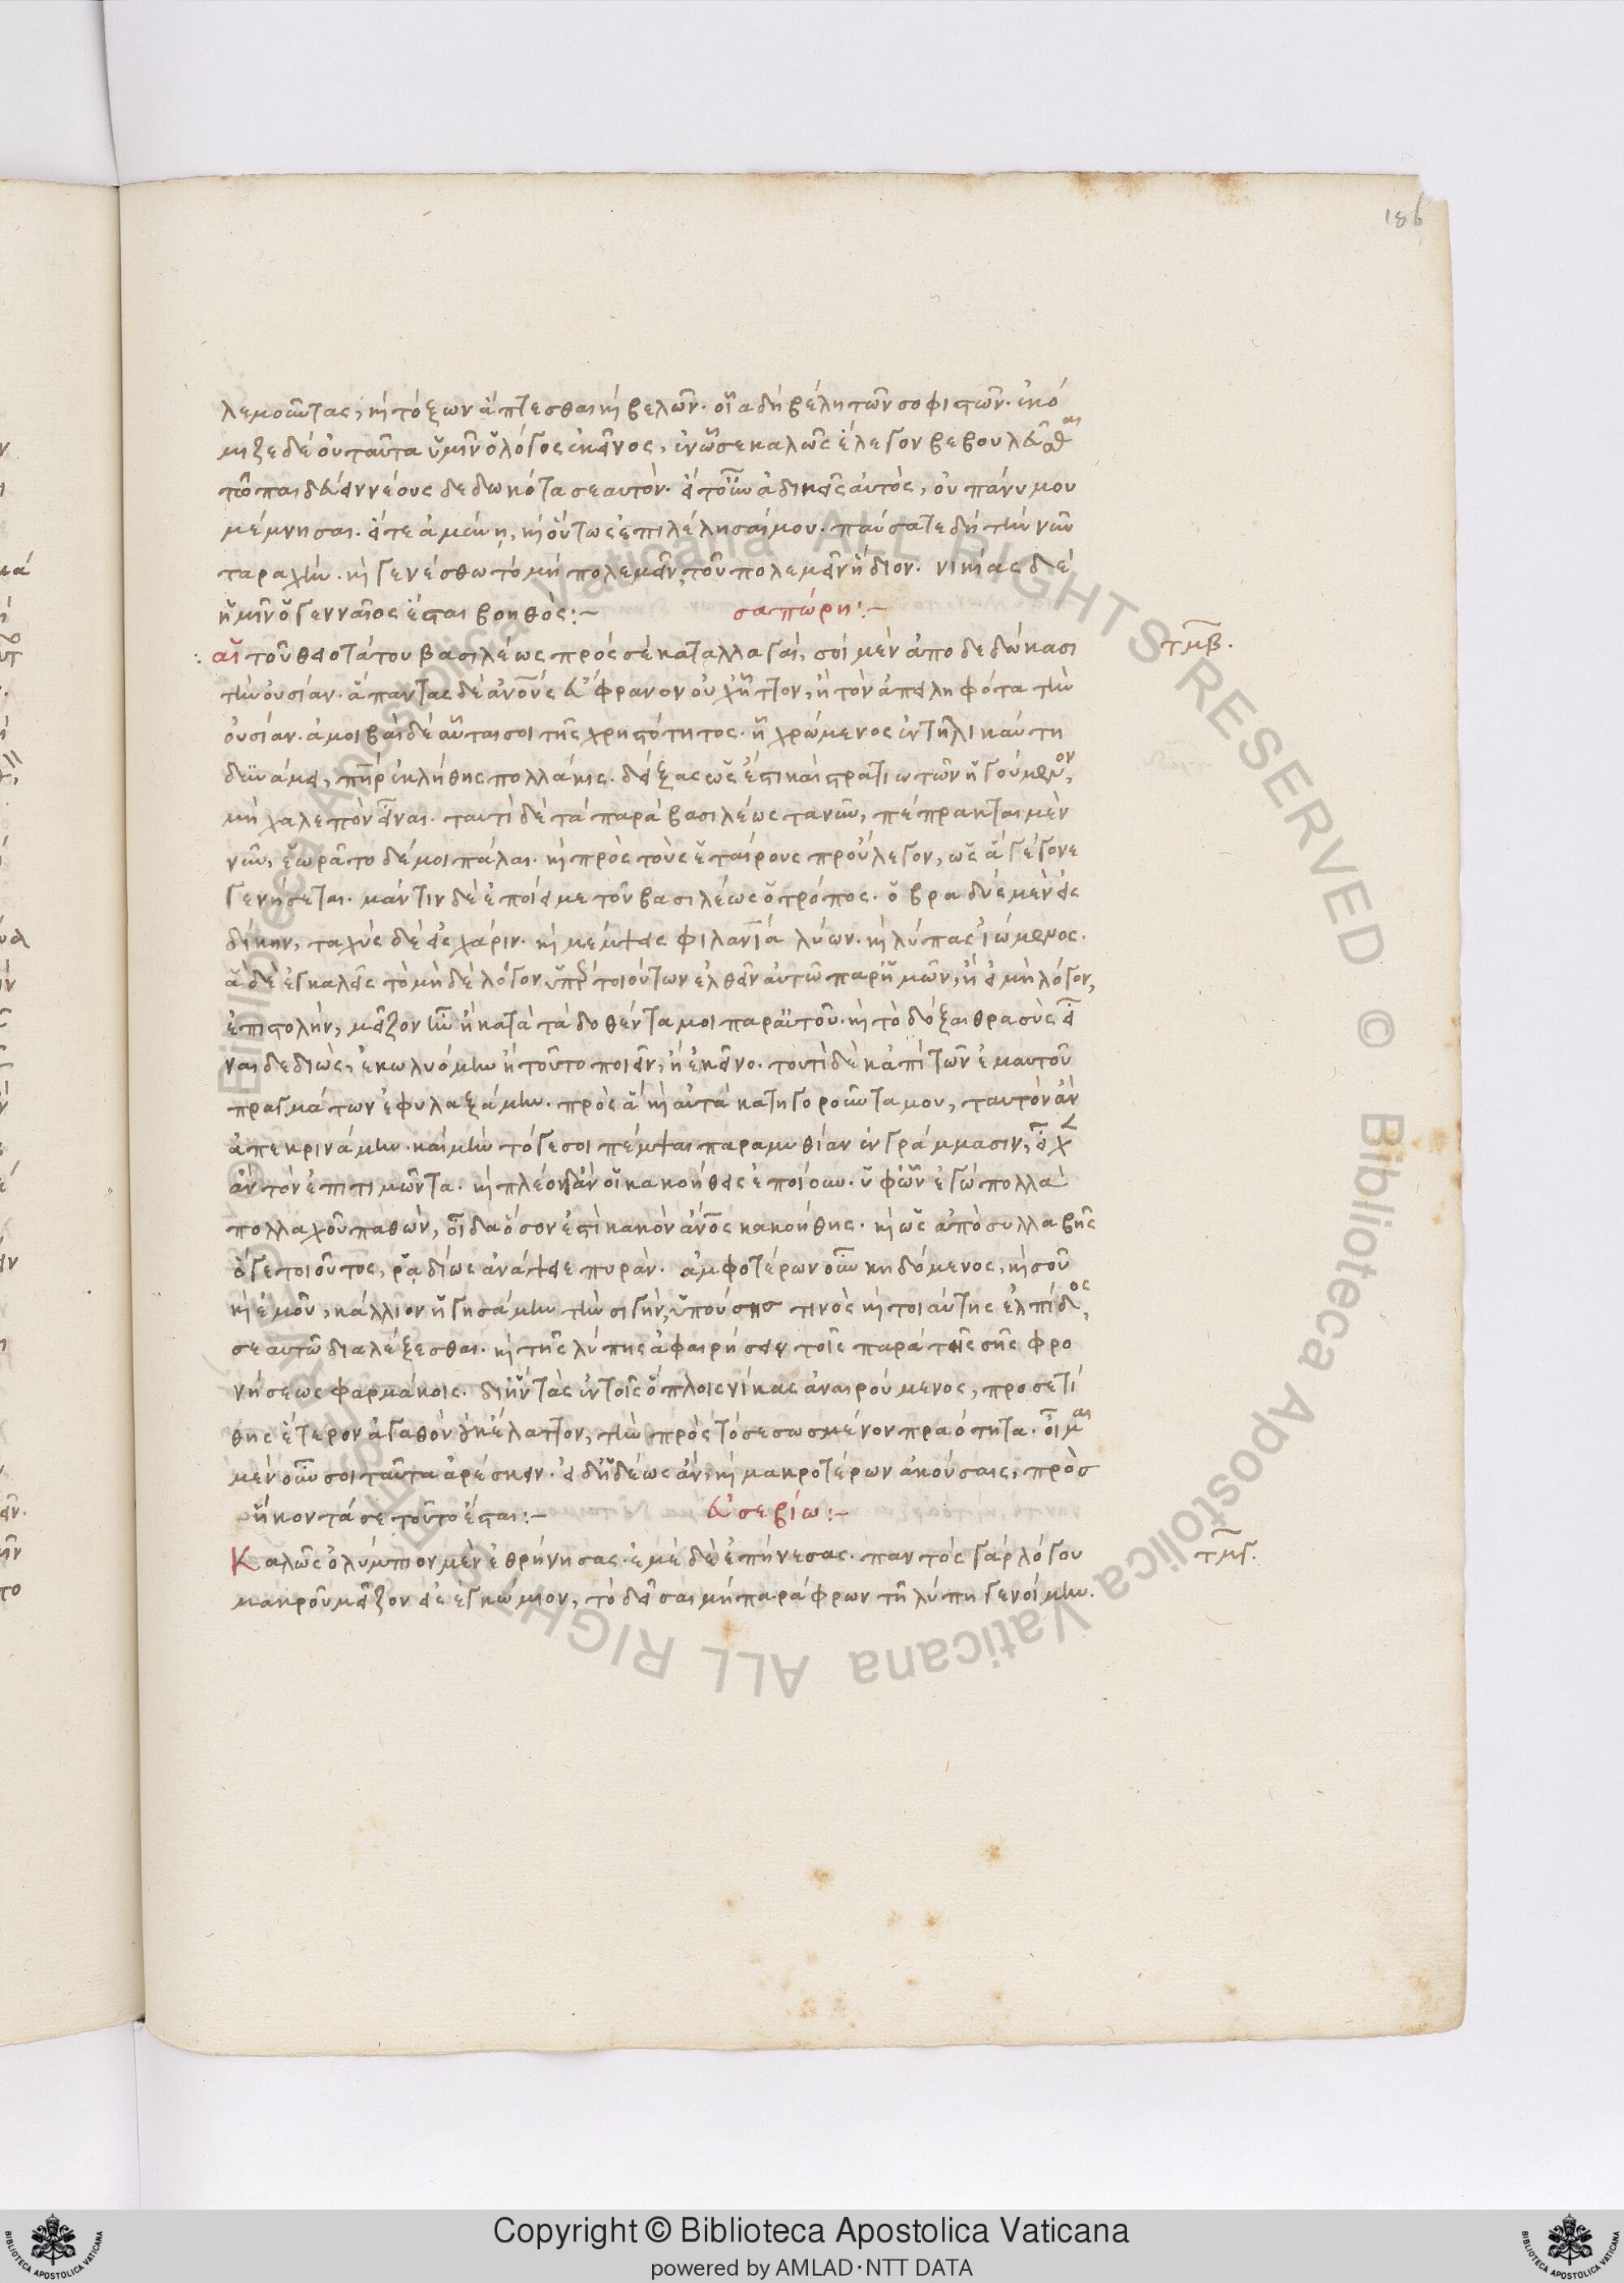 186
λεμοῦντας, καὶ τόξων ἅπτεσθαι καὶ βελῶν. οἷα δὴ βέλη τῶν σοφιστῶν. ἐκό
μιζε δὲ οὐ ταῦτα ὑμῖν ὁ λόγος ἐκεῖνος, ἐν ᾧ σε καλῶς ἔλεγον βεβουλεῦσθαι
τῷ παιδεύειν νέους δεδωκότα σεαυτόν. εἰ τοίνυν ἀδικεῖς αὐτὸς, οὐ πάνυ μου
μέμνησαι. εἴτε ἀμύνῃ, καὶ οὕτως ἐπιλέλησαί μου. παύσατε δὴ τὴν νῦν
ταραχήν. καὶ γενέσθω τὸ μὴ πολεμεῖν, τοῦ πολεμεῖν ἥδιον. νικίας δὲ
ἡμῖν ὁ γενναῖος ἔσται βοηθός:~ σαπώρῃ:~
αἱ τοῦ θειοτάτου βασιλέως πρὸς σὲ καταλλαγαὶ, σοὶ μὲν ἀποδεδώκασι
τμβ.
τὴν οὐσίαν. ἅπαντας δὲ ἀνους εὔφραναν οὐχ ἧττον, ἢ τὸν ἀπειληφότα τὴν
οὐσίαν. ἀμοιβαὶ δὲ αὗταί σοι τῆς χρηστότητος. ᾗ χρώμενος ἐν τηλικαύτῃ
δυνάμει, πῆρ ἐκλήθης πολλάκις. δείξας ὡς ἔστι καὶ στρατιωτῶν ἡγούμενον,
μὴ χαλεπὸν εἶναι. ταυτὶ δὲ τὰ παρὰ βασιλέως τανῦν, πέπρακται μὲν
νῦν, ἑωρᾶτο δέ μοι πάλαι. καὶ πρὸς τοὺς ἑταίρους προὔλεγον, ὡς ἃ γέγονε
γενήσεται. μάντιν δὲ ἐποίει με τοῦ βασιλέως ὁ τρόπος. ὁ βραδὺς μὲν εἰς
δίκην, ταχὺς δὲ εἰς χάριν. καὶ μέμψεις φιλανία λύων. καὶ λύπας ἰώμενος.
ἃ δὲ ἐγκαλεῖς τὸ μηδὲ λόγον ὑπὲρ τοιούτων ἐλθεῖν αὐτῷ παρ' ἡμῶν, ἢ εἰ μὴ λόγον,
ἐπιστολὴν, μεῖζον ἦν ἢ κατὰ τὰ δοθέντα μοι παρ' αὐτοῦ. καὶ τὸ δόξαι θρασὺς εἶ
ναι δεδιὼς, ἐκωλυόμην ἢ τοῦτο ποιεῖν, ἢ ἐκεῖνο. τουτὶ δὲ κἀπὶ τῶν ἐμαυτοῦ
πραγμάτων ἐφυλαξάμην. πρὸς ἃ καὶ αὐτὰ κατηγοροῦντά μου, ταυτὸν ἂν
ἀπεκρινάμην. καὶ μὴν τό γε σοι πέμψαι παραμυθίαν ἐν γράμμασιν, εἶχεν
ἂν τὸν ἐπιτιμῶντα. καὶ πλέον δ' ἂν οἱ κακοήθεις ἐποίουν. ὑφ' ὧν ἐγὼ πολλὰ
πολλαχοῦ παθὼν, οἶδα ὅσον ἐστὶ κακὸν ἄνος κακοήθης. καὶ ὡς ἀπὸ συλλαβῆς
ὅ γε τοιοῦτος, ῥαδίως ἀνάψειε πυράν. ἀμφοτέρων οὖν κηδόμενος, καὶ σοῦ
καὶ ἐμοῦ, κάλλιον ἡγησάμην τὴν σιγὴν, ὑπούσης τινὸς καὶ τοιαύτης ἐλπίδος,
σεαυτῷ διαλέξεσθαι. καὶ τῆς λύπης ἀφαιρήσειν τοῖς παρὰ τῆς σῆς φρο
νήσεως φαρμάκοις. δι' ἣν τὰς ἐν τοῖς ὅπλοις νίκας ἀναιρούμενος, προσετί
θης ἕτερον ἀγαθὸν οὐκ ἔλαττον, τὴν πρὸς τὸ σεσωσμένον πραότητα. οἶμαι
μὲν οὖν σοι ταῦτα ἀρέσκειν. εἰ δ' ἡδέως ἂν, καὶ μακροτέρων ἀκούσαις, πρὸς
ἥκοντά σε τοῦτο ἔσται:~ εὐσεβίῳ:~
Καλῶς ὀλύμπιον μὲν ἐθρήνησας. ἐμὲ δὲ ἐπῄνεσας. παντὸς γὰρ λόγου
τμγ.
μακροῦ μεῖζον εἰς ἐγκώμιον, τὸ δεῖσαι μὴ παράφρων τῇ λύπῃ γενοίμην.
Copyright © Biblioteca Apostolica Vaticana
powered by AMLAD·NTT DATA